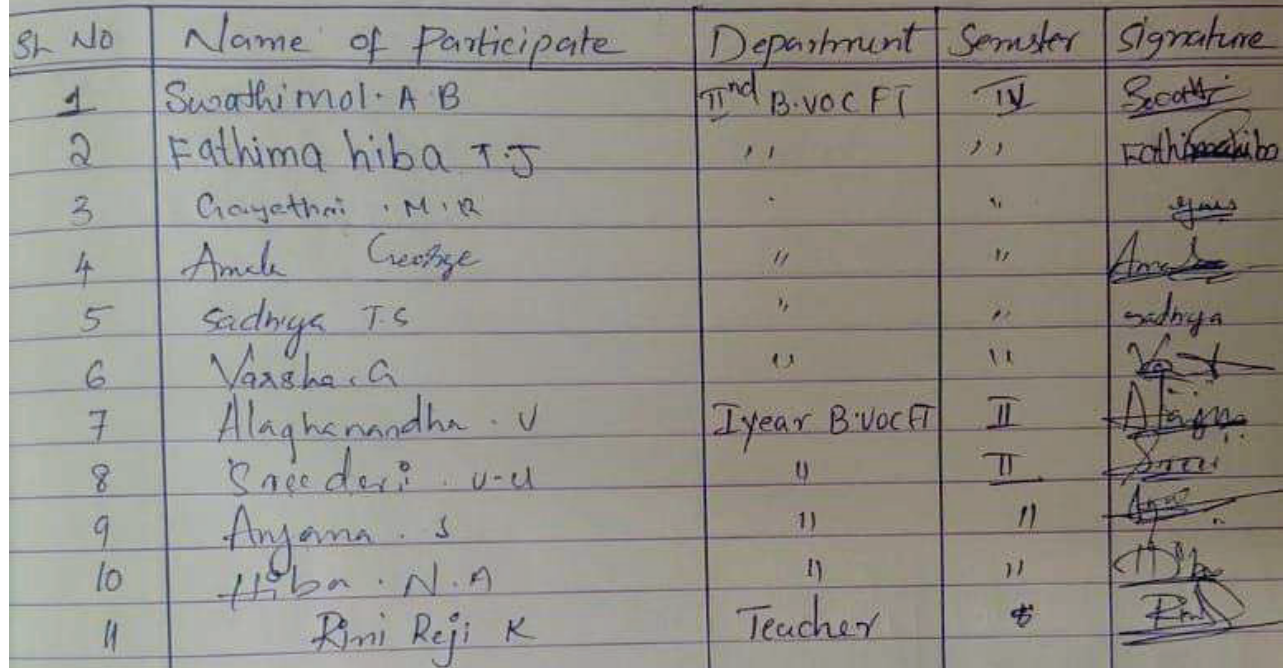 SL No Name of Participate Department Semester Signature
1 Swathimol. A.B IInd B.VOC FT IV Swathi
2 Fathima hiba T.J ,, ,, Fathimahiba
3 Gayathri . M.R " "
4 Amala George " " Amala
5 Sadhiya T.S " " sadhiya
6 Varsha. G " "
7 Alaghanandha . V I year B.VOC FT II
8 Sreedevi . U-U " II
9 Anjana . S " "
10 Hiba . N.A " " Hiba
11 Rini Reji K Teacher Rini